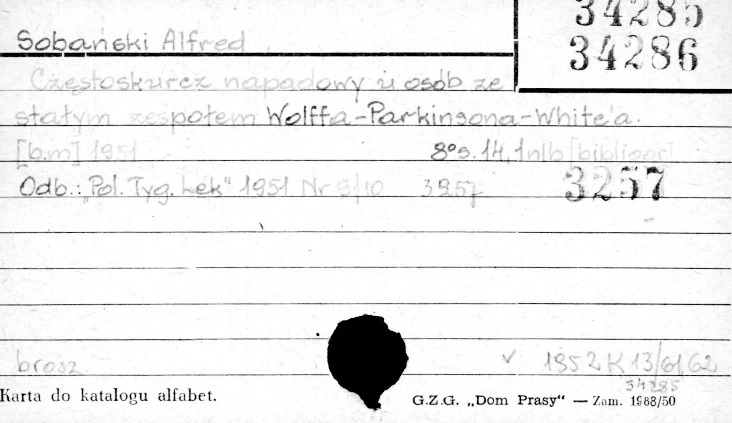 34285
34286
Sobański Alfred
Częstoskurcz napadowy u osób ze
stałym zespołem Wolffa-Parkinsona-White'a.
[b.m] 1951 8° s. 14, 1 nlb [bibliogr]
Odb.: „Pol. Tyg. Lek" 1951 Nr 9/10 3257 3257
brosz ✓ 1952 K 13/61,62
34285
Karta do katalogu alfabet. G.Z.G. „Dom Prasy" — Zam. 1988/50